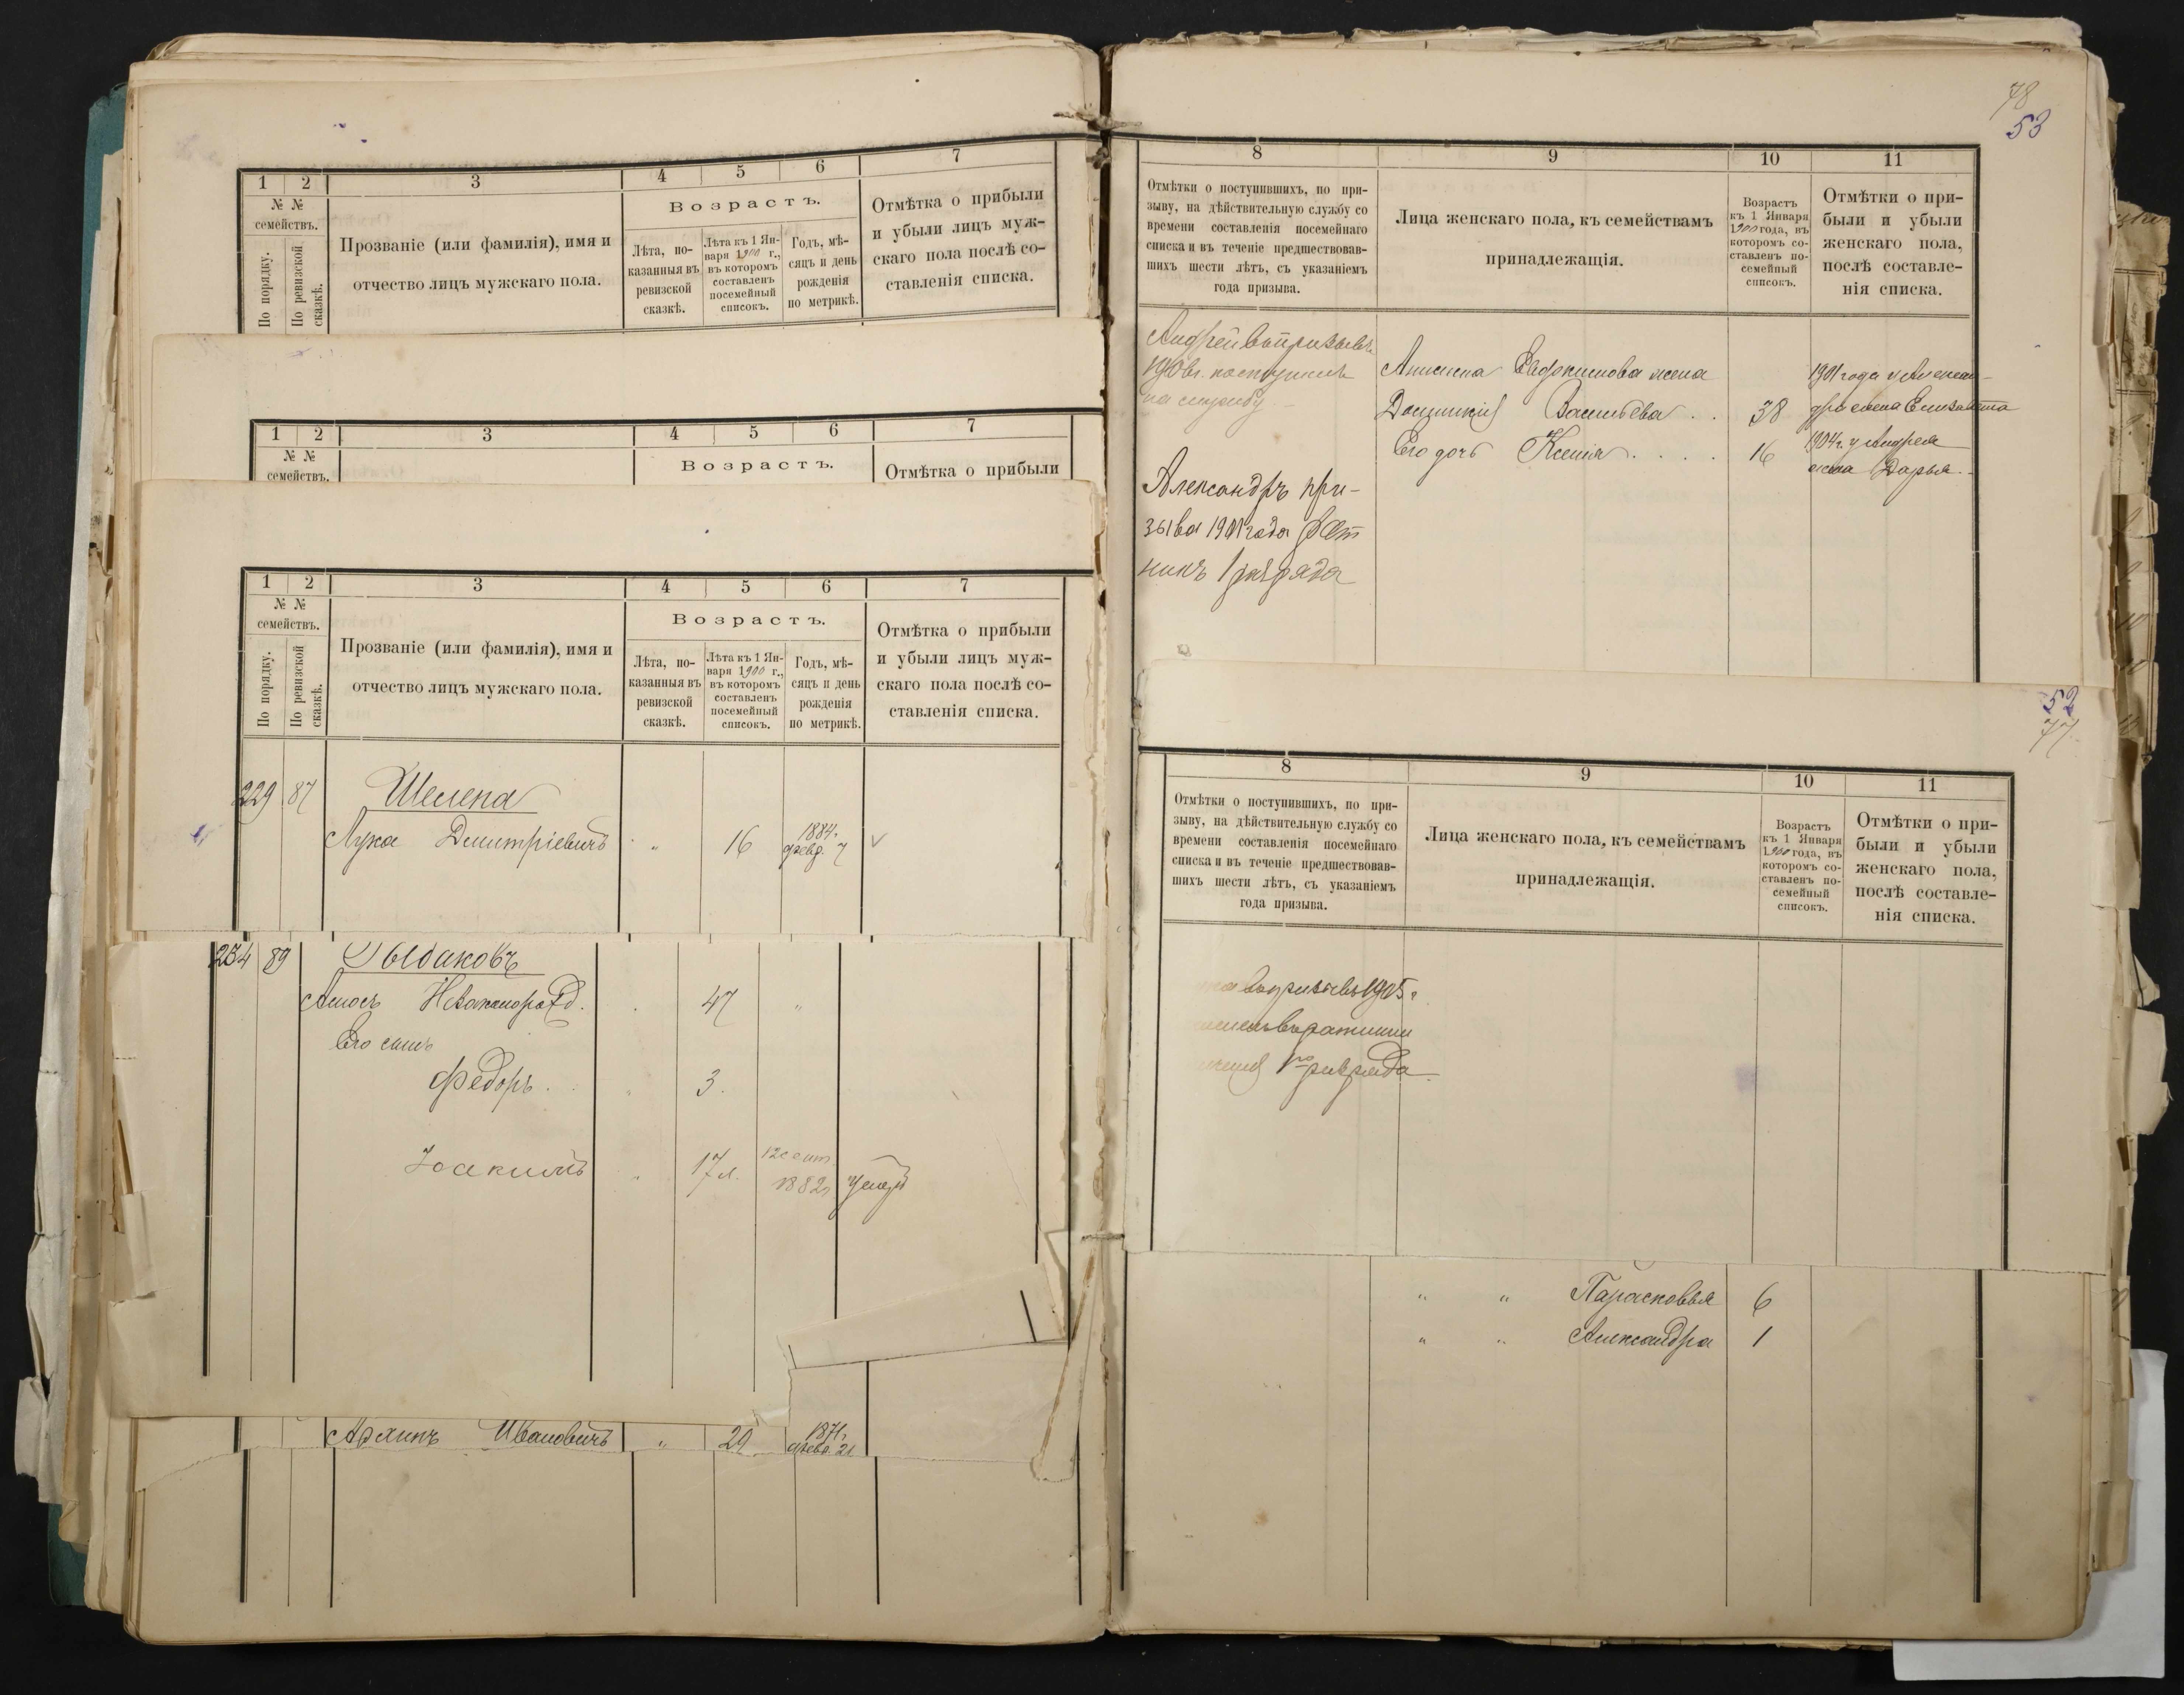 1 2 3 4 5 6 7
№ № семействъ.
По порядку.
По ревизской сказкѣ.
Прозваніе (или фамилія), имя и
отчество лицъ мужскаго пола.
Возрастъ.
Лѣта, по-
казанныя въ
ревизской
сказкѣ.
Лѣта къ 1 Ян-
варя 1900 г.,
въ которомъ
составленъ
посемейный
списокъ.
Годъ, мѣ-
сяцъ и день
рожденія
по метрикѣ.
Отмѣтка о прибыли
и убыли лицъ муж-
скаго пола послѣ со-
ставленія списка.
1 2 3 4 5 6 7
№ №
семействъ.
Возрастъ.
Отмѣтка о прибыли
1 2 3 4 5 6 7
№ №
семействъ.
По порядку.
По ревизской
сказкѣ.
Прозваніе (или фамилія), имя и
отчество лицъ мужскаго пола.
Возрастъ.
Лѣта, по-
казанныя въ
ревизской
сказкѣ.
Лѣта къ 1 Ян-
варя 1900 г.,
въ которомъ
составленъ
посемейный
списокъ.
Годъ, мѣ-
сяцъ и день
рожденія
по метрикѣ.
Отмѣтка о прибыли
и убыли лицъ муж-
скаго пола послѣ со-
ставленія списка.
229 87 Шелепа
Лука Дмитріевичъ " 16 1884. февр. 7
234 89
Амосъ 47 "
Его сынъ
Федоръ . . " 3.
Іоакимъ " 17 л. 12 сент. 1882 Умеръ
Архипъ Ивановичъ " 29 1871. февр. 21
78
53
8 9 10 11
Отмѣтки о поступившихъ, по при-
зыву, на дѣйствительную службу со
времени составленія посемейнаго
списка и въ теченіе предшествовав-
шихъ шести лѣтъ, съ указаніемъ
года призыва.
Лица женскаго пола, къ семействамъ
принадлежащія.
Возрастъ
къ 1 Января
1900 года, въ
которомъ со-
ставленъ по-
семейный
списокъ.
Отмѣтки о при-
были и убыли
женскаго пола,
послѣ составле-
нія списка.
Андрей въ призывъ
поступилъ
на службу
Александръ при-
зыва 1901 года Рат
никъ 1 разряда
Анисима Евдокимова жена
Домникія Васильева . . 38
Его дочь Ксенія . . . . 16
1901 года у Алексан-
дра жена Елизавета
1904 г. у Андрея
жена Дарья.
52
77
8 9 10 11
Отмѣтки о поступившихъ, по при-
зыву, на дѣйствительную службу со
времени составленія посемейнаго
списка и въ теченіе предшествовав-
шихъ шести лѣтъ, съ указаніемъ
года призыва.
Лица женскаго пола, къ семействамъ
принадлежащія.
Возрастъ
къ 1 Января
1900 года, въ
которомъ со-
ставленъ по-
семейный
списокъ.
Отмѣтки о при-
были и убыли
женскаго пола,
послѣ составле-
нія списка.
въ призывъ 1905 г.
въ ратники
1го разряда
" " Парасковья 6
" " Александра 1